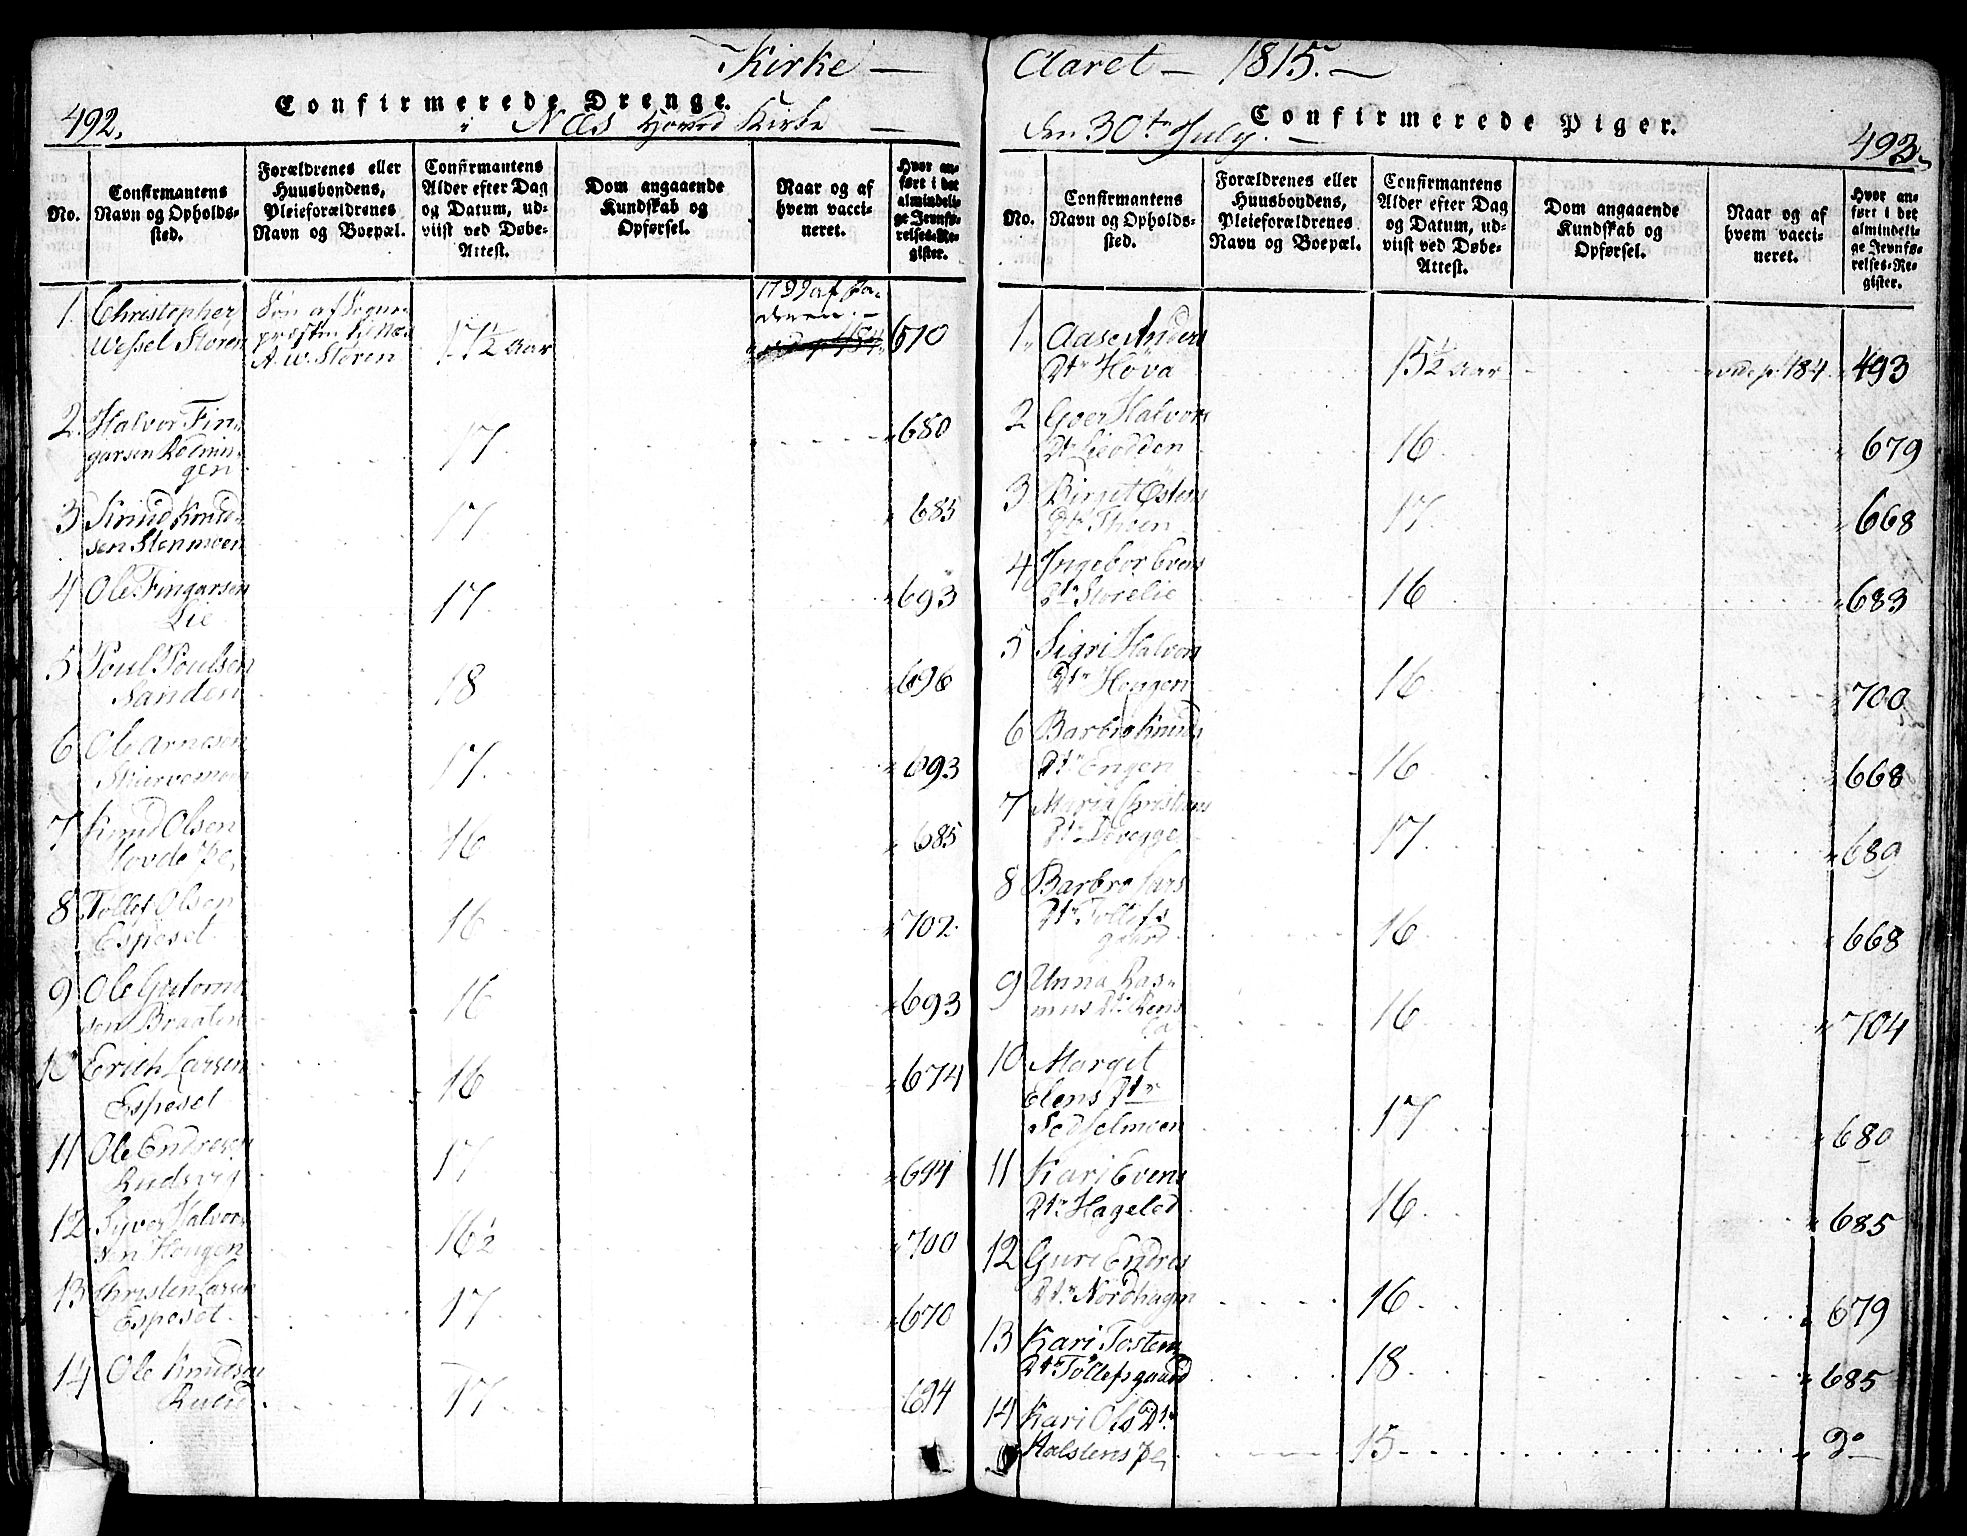 Kirke —
492.
Confirmerede Drenge.
i Næs Hoved Kirke —
No.
Confirmantens
Navn og Opholds-
sted.
Forældrenes eller
Huusbondens,
Pleieforældrenes
Navn og Boepæl.
Confirmantens
Alder efter Dag
og Datum, ud-
viist ved Døbe-
Attest.
Dom angaaende
Kundskab og
Opførsel.
Naar og af
hvem vacci-
neret.
Hvor an-
ført i det
almindeli-
ge Jevnfø-
relses-Re-
gister.
1. Christopher Søn af Sogne- 1799 af Fa-
Wessel Støren præsten til Næs 17½ Aar deren. — 670
A. W. Støren
2. Halvor Fin-
garsen 17 680
gen
3 Knud Knud-
sen Stenmoen 17 685
4 Ole Fingarsen
Lie 17 693
5 Poul Poulsen
Sanden 18 696
6 Ole Arnesen
17 693
7 Knud Olsen
Hovde 16 685
8 Tollef Olsen
Espeset 16 702
9 Ole Guttorm-
sen Braaten 16 693
10 Erich Larsen
Espeset 16 674
11 Ole Endresen
Rudsvig 17 694
12 Syver Halvor-
sen Hougen 16½ 700
13 Christen Larsen
Espeset 17 670
14 Ole Knudsen
17 694
Aaret — 1815. —
Confirmerede Piger.
den 30te July. —
493
No.
Confirmantens
Navn og Opholds-
sted.
Forældrenes eller
Huusbondens,
Pleieforældrenes
Navn og Boepæl.
Confirmantens
Alder efter Dag
og Datum, ud-
viist ved Døbe-
Attest.
Dom angaaende
Kundskab og
Opførsel.
Naar og af
hvem vacci-
neret.
Hvor an-
ført i det
almindeli-
ge Jevnfø-
relses-Re-
gister.
1. Aase Anders
Dtr Höva 15½ Aar 184 493
2 Halvors
Dtr Lieodden 16 679
3 Birget Østens
Dtr Thoen 17 668
4 Ingebor Evens
Dtr Storelie 16 683
5 Sigri Halvors
Dtr Hougen 16 700
6 Barbro Knuds
Dtr Engen 16 668
7 Maria Christens
Dtr 17 680
8 Barbro Lars
Dtr Tollefs
gaard 16 668
9 Unna Ras-
mus Dtr 16 704
10 Margit
Elens Dtr
17 680
11 Kari Evens
Dtr Hagelod 16 685
12 Guri Endres
Dtr Nordhagen 16 679
13 Kari Tosten
Dtr Tollefsgaard 18 685
14 Kari Ols Dtr
15 Do